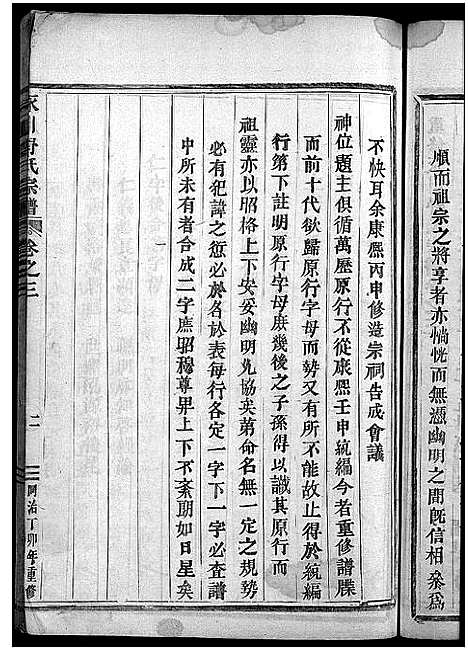 順而祖宗之將享者亦惝恍而無憑幽明之間旣信相發爲
不快耳余康熙丙申修造宗祠告成會議
神位題主俱循萬歷原行不從康熙壬申統編今者重修譜牒
而前十代欲歸原行字母而勢又有所不能故止得於統編
行第下註明原行字母庶幾後之子孫得以識其原行而
祖靈亦以昭格上下安妥幽明允協矣第命名無一定之規勢
必有犯諱之愆必於各於表每行各定一字下一字必查譜
中所未有者合成二字庶昭穆尊昇上下不紊朗如日星矣
氏宗譜 卷之三 二 同治丁卯年重修